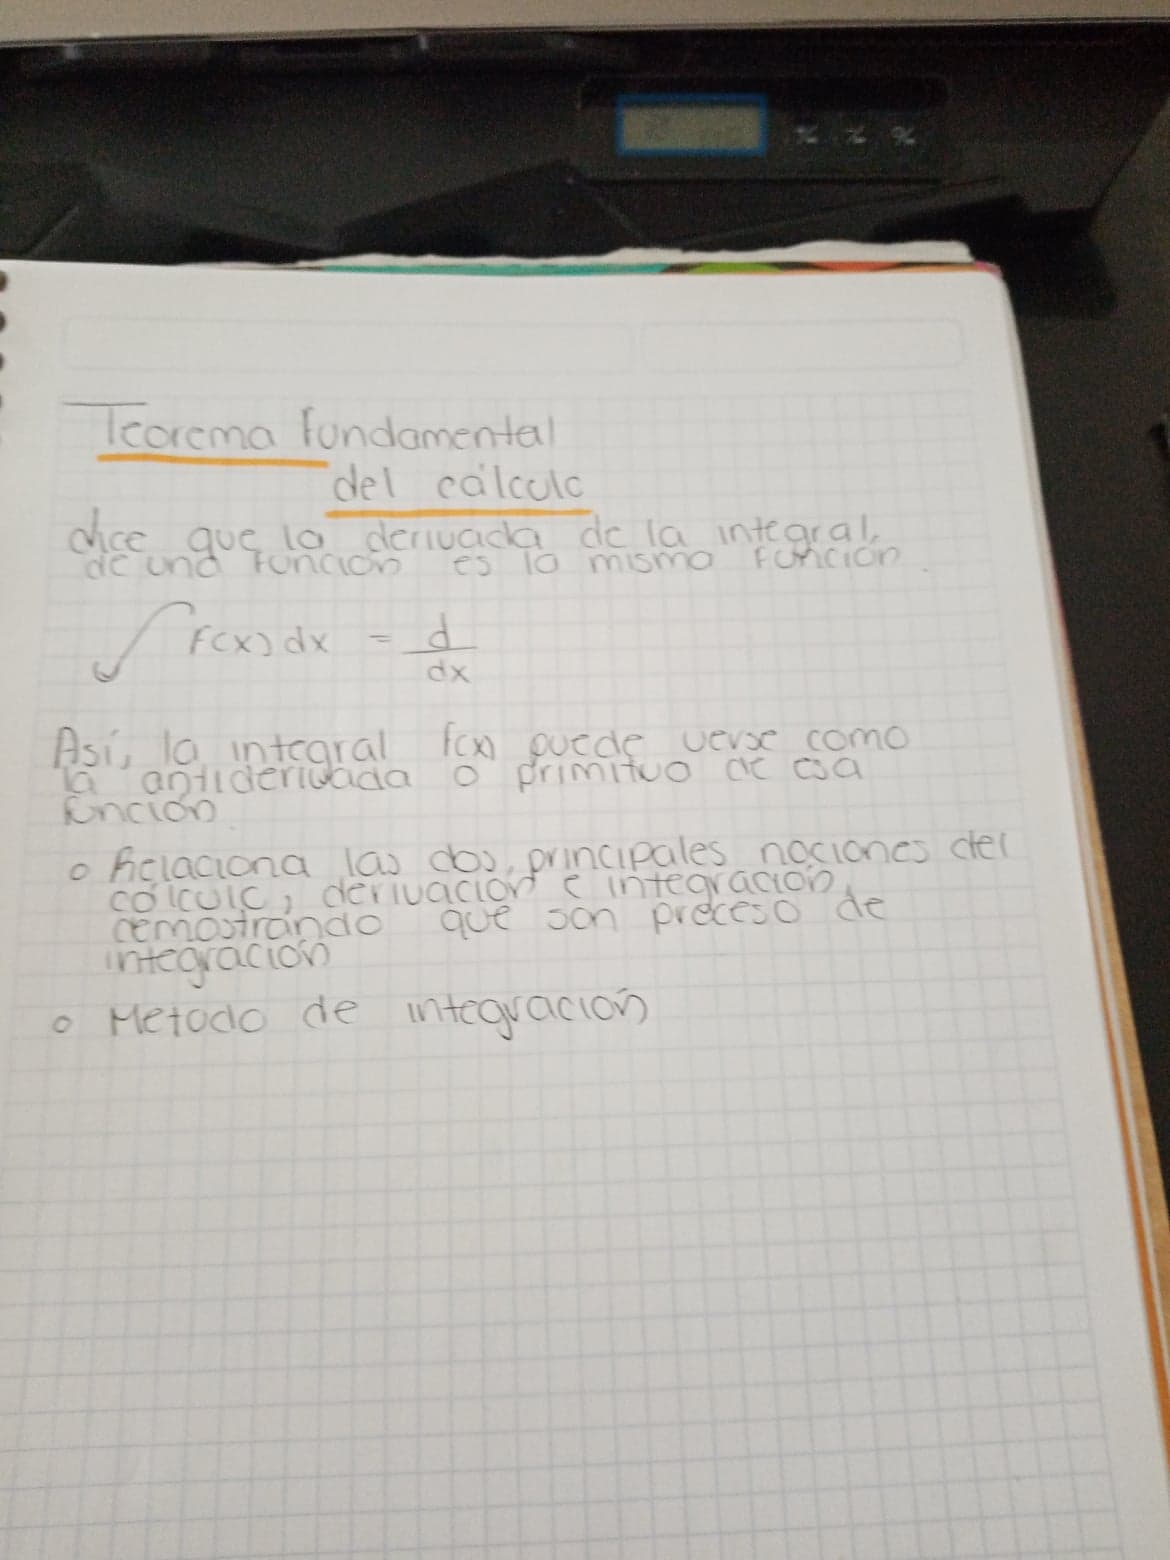 Teorema fundamental
del cálculo
dice que la derivada de la integral
de una función es la misma función.
∫ f(x) dx = d/dx
Así, la integral f(x) puede verse como
la antiderivada o primitivo de esa
función
o Relaciona las dos, principales nociones del
cálculo, derivación e integración,
demostrando que son proceso de
integración
o Metodo de integración